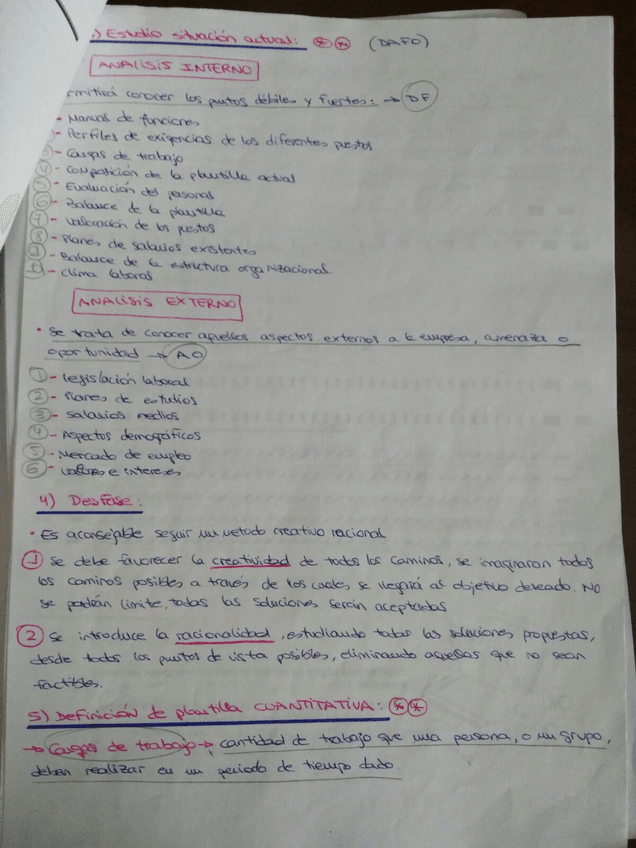 .) Estudio situación actual: ** (DAFO)
ANALISIS INTERNO
ermitirá conocer los puntos débiles y fuertes: → DF
- Manual de funciones
- Perfiles de exigencias de los diferentes puestos
3 - Cargas de trabajo
4 - Composición de la plantilla actual
5 - Evaluación del personal
6 - Balance de la plantilla
7 - Valoración de los puestos
8 - Planes de salarios existentes
9 - Balance de la estructura organizacional
- Clima laboral
ANALISIS EXTERNO
• Se trata de conocer aquellos aspectos externos a la empresa, amenaza o
oportunidad → AO
1 - Legislación laboral
2 - Planes de estudios
3 - Salarios medios
4 - Aspectos demográficos
5 - Mercado de empleo
6 - Valores e intereses
4) Desfase:
• Es aconsejable seguir un metodo creativo racional
1 Se debe favorecer la creatividad de todos los caminos, se imaginaran todos
los caminos posibles a través de los cuales se llegará al objetivo deseado. No
se pondrán limite, todas las soluciones serán aceptadas
2 Se introduce la racionalidad, estudiando todas las soluciones propuestas,
desde todos los puntos de vista posibles, eliminando aquellas que no sean
factibles.
5) Definición de plantilla CUANTITATIVA: **
→ Cargas de trabajo → cantidad de trabajo que una persona, o un grupo,
deben realizar en un periodo de tiempo dado.